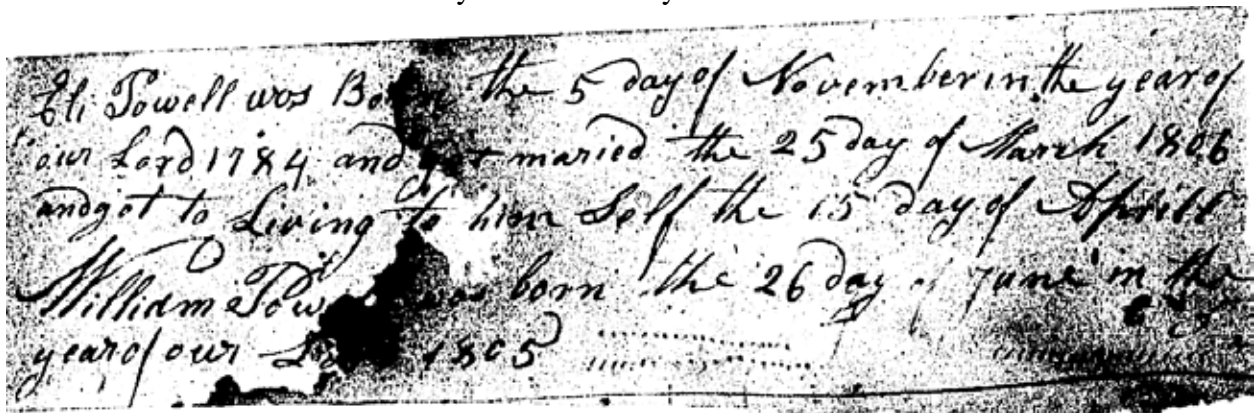 Eli Powell wos Bo the 5 day of November in the year of
our Lord 1784 and got maried the 25 day of March 1806
and got to Living to him Self the 15 day of Aprill
William Pow was born the 26 day of June in the
year of our 1805